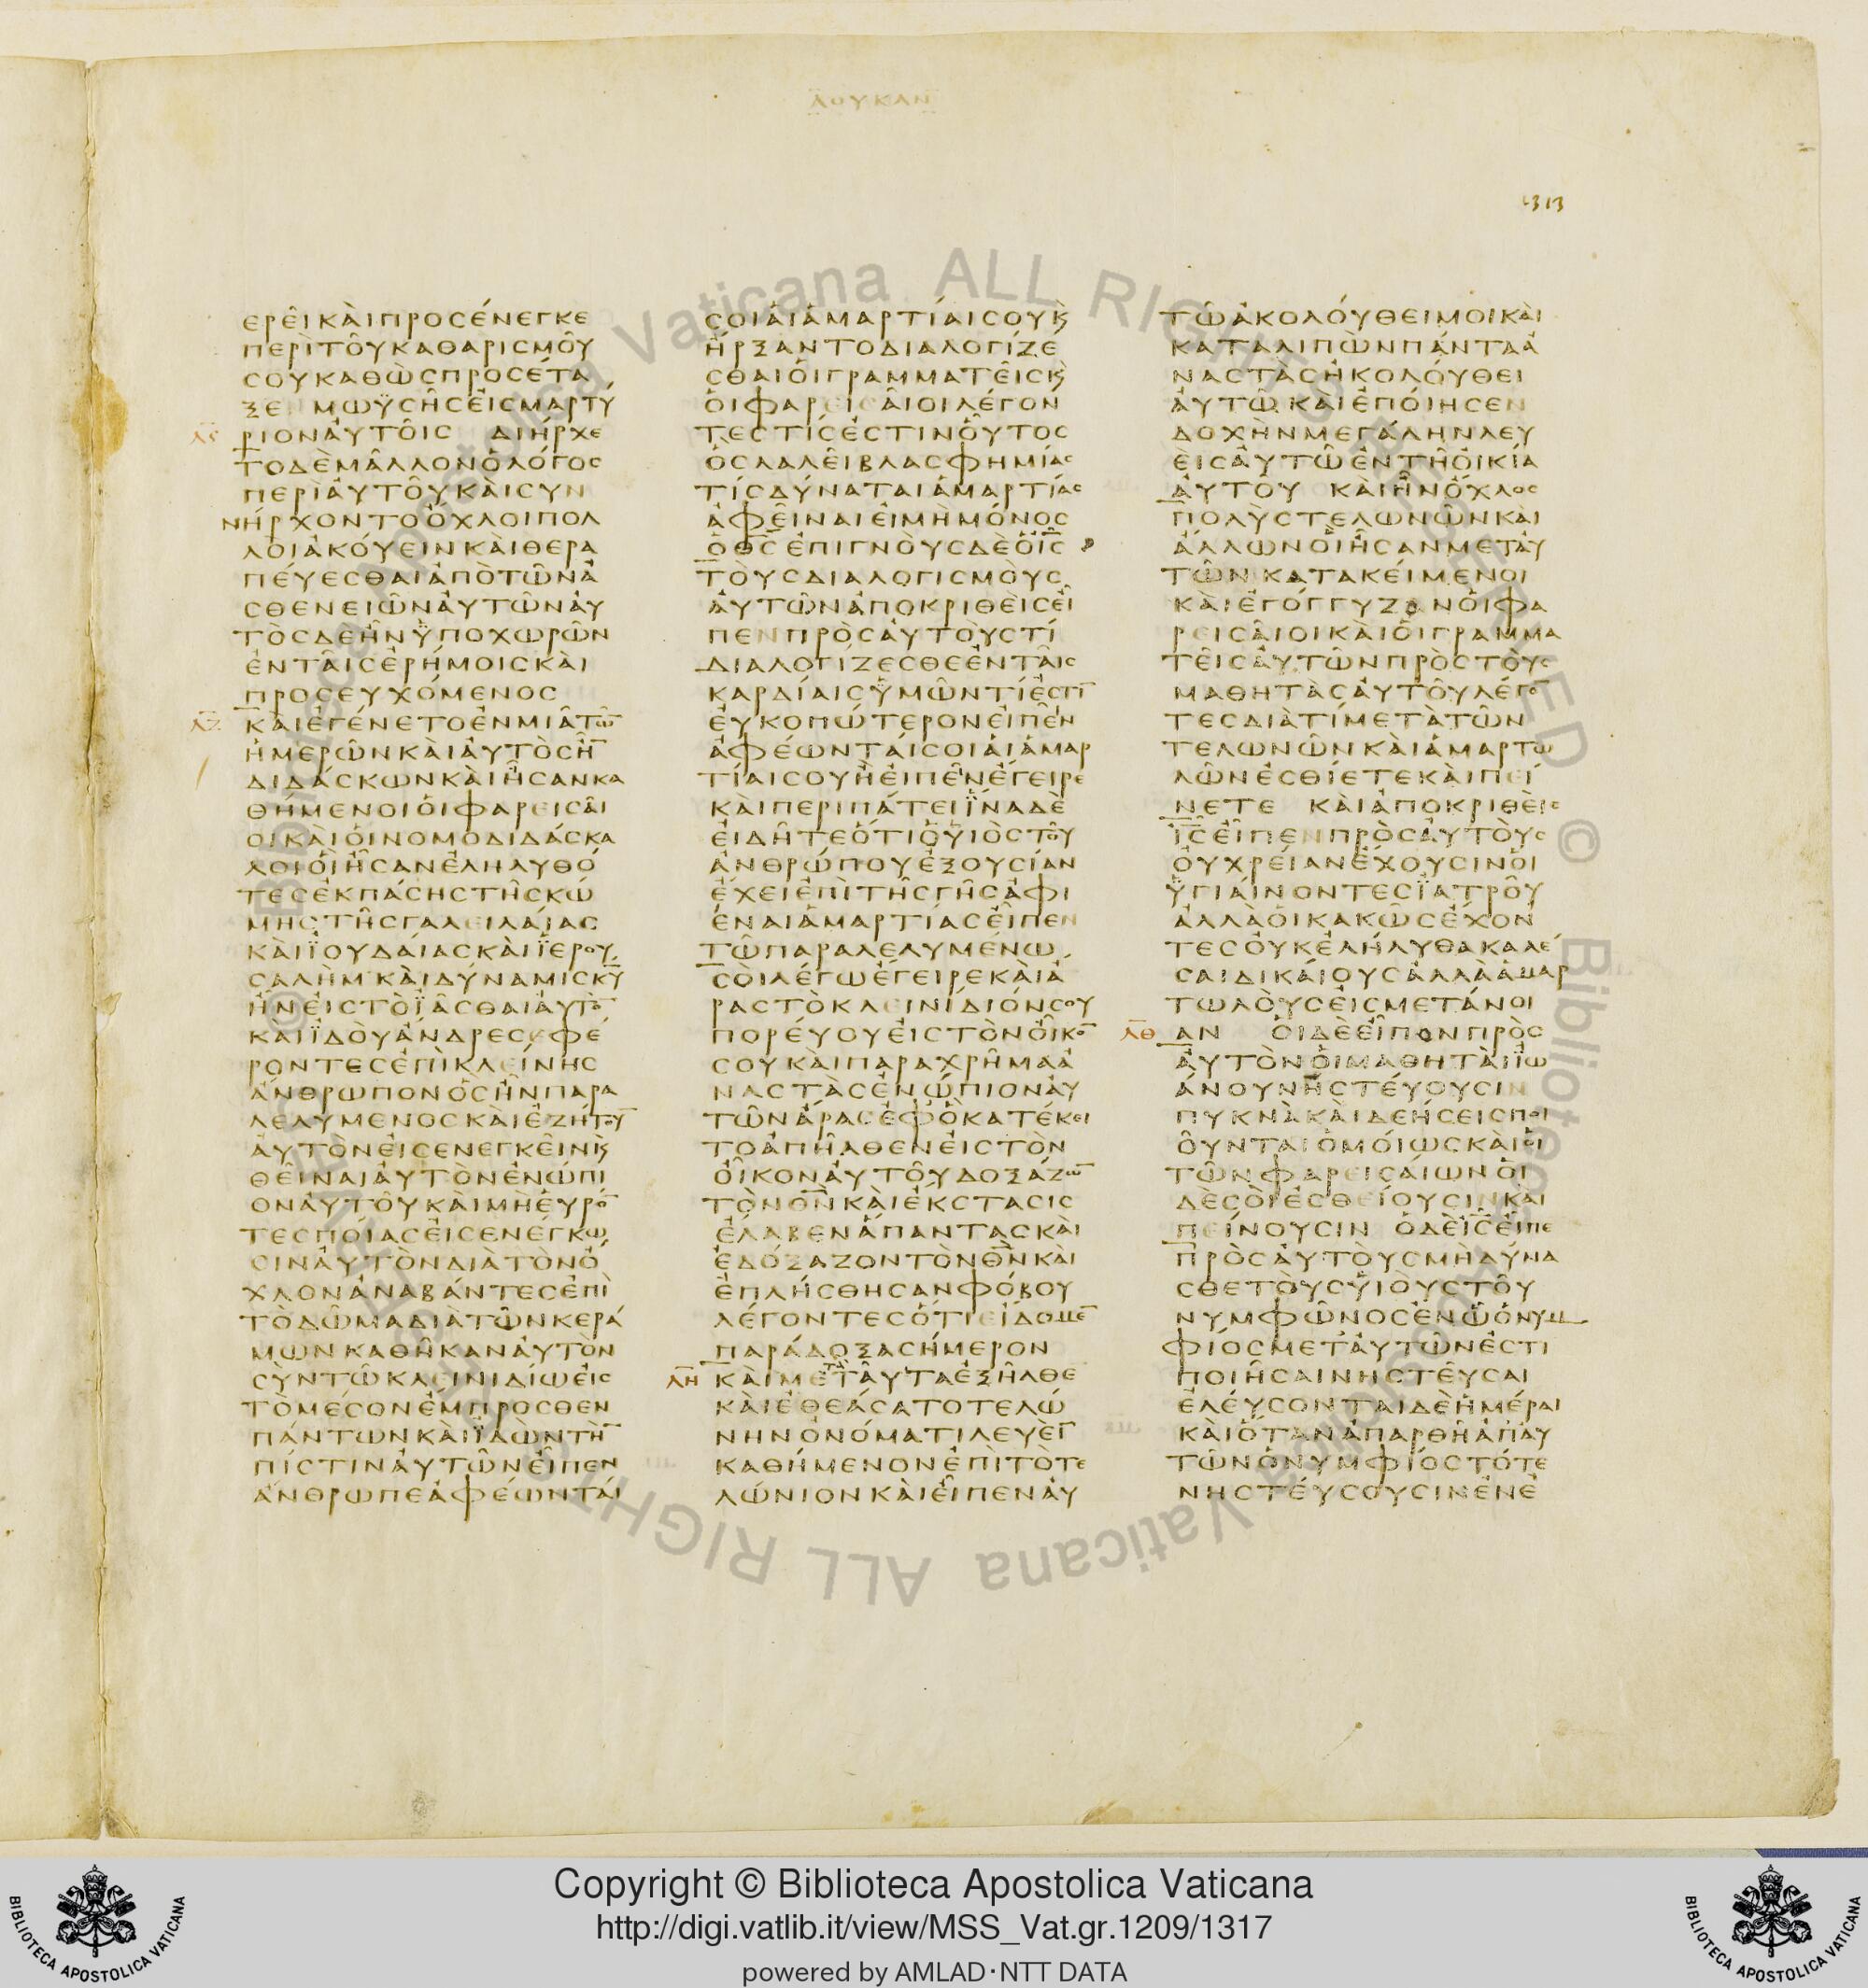 ΛΟΥΚΑΝ
1313
ερε͂ικὰιπροσένεγκε
περιτο͂υκαθαρισμο͂υ
σουκαθὼσπροσέτα
ξεν μωϋσῆσἐισμάρτυ
λϛ ριονἀυτο͂ισ διήρχε
τοδὲμᾶλλονὁλόγοσ
περὶἀυτο͂υκὰισυν
νήρχοντοὄχλοιπολ
λοιἀκόυεινκὰιθερα
πέυεσθαιἀπὸτῶνἀ
σθενειῶνἀυτῶνἀυ
τὸσδὲἦνὑποχωρῶν
ἐντᾶισἐρήμοισκὰι
προσευχόμενοσ
λζ καιἐγένετοἐνμιᾶτῶ̅
ἡμερῶνκὰιἀυτὸσἦ̅
διδάσκωνκὰιἦσανκα
θήμενοιὁιφαρεισᾶι
οικὰιὁινομοδιδάσκα
λοιὁιἦσανἐληλυθό
τεσἐκπάσηστῆσκώ
μηστῆσγαλειλάιασ
κὰιϊουδαίασκὰιϊερου
σαλὴμκὰιδύναμισκ̅υ̅
ἦνἐιστὸϊᾶσθαιἀυτὸ̅
κὰιϊδὸυἄνδρεσφέ
ροντεσἐπὶκλείνησ
ἄνθρωπονὃσἦνπαρα
λελυμενοσκὰιἐζήτου̅
ἀυτὸνἐισενεγκε͂ινκ̀
θε͂ιναιἀυτὸνἐνώπι
ονἀυτο͂υκὰιμὴἑυρό̅
τεσπόιασἐισενεγκω
σινἀυτὸνδιὰτὸνὄ
χλονἀναβάντεσἐπὶ
τὸδῶμαδιὰτῶνκερά
μωνκαθῆκανἀυτὸν
σὺντῶκλεινιδίωἐισ
τὸμέσονἔμπροσθεν
πάντωνκὰιϊδὼντὴ̅
πίστινἀυτῶνἐ͂ιπεν
ἄνθρωπεἀφέωντάι
σοιἁιἁμαρτίαισουκ̀
ἤρξαντοδιαλογίζε
σθαιὁιγραμματε͂ισκ̀
ὁιφαρεισᾶιοιλέγον
τεστίσἐστινὁ͂υτοσ
ὃσλαλε͂ιβλασφημίασ
τίσδύναταιἁμαρτίασ
ἀφε͂ιναιἐιμὴμόνοσ
ὁθ̅σ̅ἐπιγνὸυσδὲὁι̅σ̅
τὸυσδιαλογισμὸυσ
ἀυτῶνἀποκριθὲισἐ͂ι
πενπρὸσἀυτὸυστί
διαλογίζεσθεἐντᾶισ
καρδίαισὑμῶντίἐστι̅
ἐυκοπώτερονἐιπε͂ιν
ἀφέωντάισοιἁιἁμαρ
τίαισουἢἐιπε͂ινἔγειρε
κὰιπεριπάτειἵναδὲ
ἐιδῆτεὅτιὁὑιὸστο͂υ
ἀνθρώπουἐξουσίαν
ἔχειἐπὶτῆσγῆσἀφι
έναιἁμαρτίασἐ͂ιπεν
τῶπαραλελυμένω
σὸιλέγωἔγειρεκὰιἄ
ραστὸκλεινίδιόνσου
πορέυουἐιστὸνὀ͂ικο̅
σουκὰιπαραχρῆμαἀ
ναστὰσἐνώπιονἀυ
τῶνἄρασἐφὃκατέκει
τοἀπῆλθενἐιστὸν
ὀ͂ικονἀυτο͂υδοξάζω̅
τὸνθ̅ν̅κὰιἔκστασισ
ἔλαβενἅπαντασκὰι
ἐδόξαζοντὸνθ̅ν̅κὰι
ἐπλήσθησανφόβου
λέγοντεσὅτιεἴδομε̅
παράδοξασήμερον
λη κὰιμετὰτᾶυταἐξῆλθε
κὰιἐθεάσατοτελώ
νηνὀνόματιλευὲὶ
καθήμενονἐπὶτὸτε
λώνιονκὰιἐ͂ιπενἀυ
τῶἀκολόυθειμοικὰι
καταλιπὼνπάνταἀ
ναστὰσἠκολόυθει
ἀυτῶκὰιἐπόιησεν
δοχὴνμεγάληνλευ
ὲισἀυτῶἐντῆὀικία
ἀυτο͂υ κὰιἦνὄχλοσ
πολὺστελωνῶνκὰι
ἄλλωνὁιἦσανμετἀυ
τῶνκατακείμενοι
κὰιἐγόγγυζονὁιφα
ρεισᾶιοικὰιὁιγραμμα
τε͂ισἀυτῶνπρὸστὸυσ
μαθητὰσἀυτο͂υλέγο̅
τεσδιὰτίμετὰτῶν
τελωνῶνκὰιἁμαρτω
λῶνἐσθίετεκὰιπεί
νετε κὰιἀποκριθὲισ
ι̅σ̅ἐ͂ιπενπρὸσἀυτὸυσ
ὀυχρέιανἔχουσινὁι
ὑγιάινοντεσϊατρο͂υ
ἀλλὰὁικακῶσἔχον
τεσὀυκἐλήλυθακαλέ
σαιδικάιουσἀλλὰἁμαρ
τωλὸυσἐισμετάνοι
λθ αν ὁιδὲἐ͂ιπονπρὸσ
ἀυτὸνὁιμαθητὰιϊω
άνουνηστέυουσιν
πυκνὰκὰιδεήσεισποι
ο͂υνταιὁμόιωσκὰιὁι
τῶνφαρεισάιωνὁι
δὲσὸιἐσθίουσινκαι
πείνουσιν ὁδὲι̅σ̅ἐ͂ιπε
πρὸσἀυτὸυσμὴδύνα
σθετὸυσὑιὸυστο͂υ
νυμφῶνοσἐνὧὁνυμ
φίοσμετἀυτῶνἐστι
ποιῆσαινηστε͂υσαι
ἐλέυσονταιδὲἡμέραι
κὰιὅτανἀπαρθῆἀπἀυ
τῶνὁνυμφίοστότε
νηστέυσουσινἐνἐ
Copyright © Biblioteca Apostolica Vaticana
http://digi.vatlib.it/view/MSS_Vat.gr.1209/1317
powered by AMLAD·NTT DATA
BIBLIOTECA APOSTOLICA VATICANA
BIBLIOTECA APOSTOLICA VATICANA
© Biblioteca Vaticana ALL RIGHTS RESERVED © Biblioteca Vaticana ALL RIGHTS RESERVED